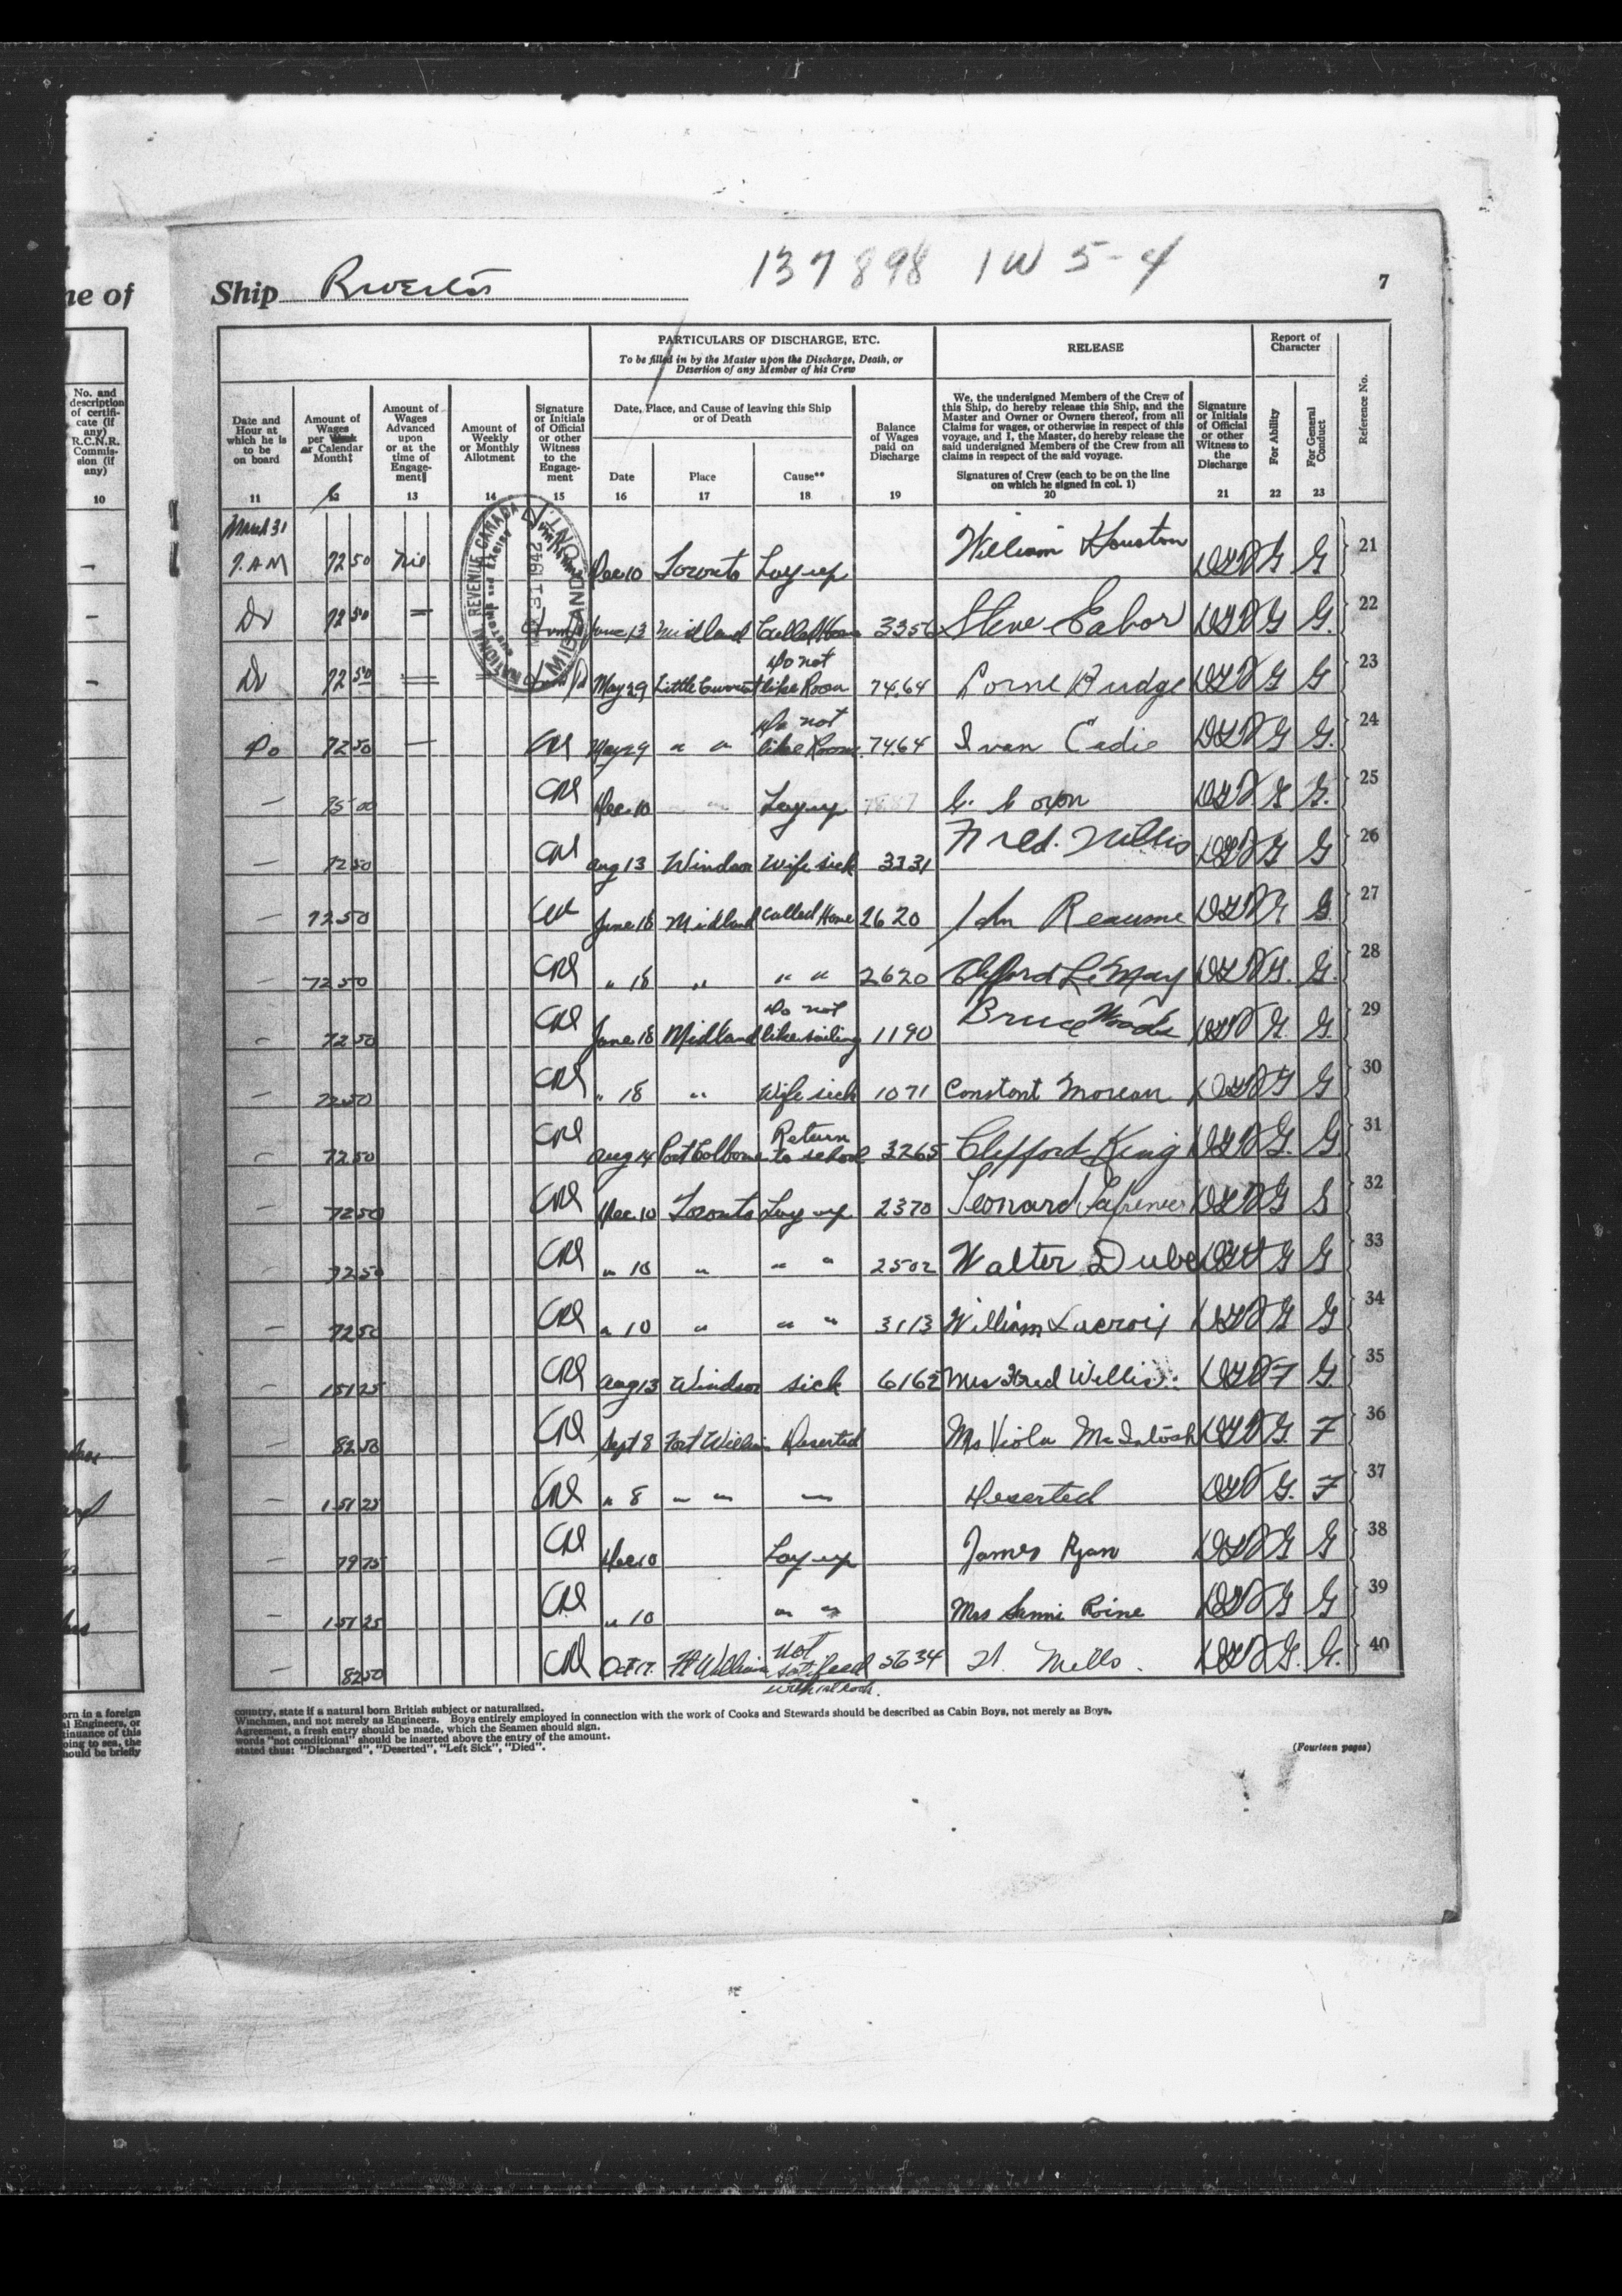 137898 1W 5-4
ne of
Ship Riverton
7
PARTICULARS OF DISCHARGE, ETC.
To be filled in by the Master upon the Discharge, Death, or
Desertion of any Member of his Crew
RELEASE
Report of
Character
Reference No.
No. and
description
of certifi-
cate (if
any)
R.C.N.R.
Commis-
sion (if
any)
10
Date and
Hour at
which he is
to be
on board
11
Amount of
Wages
per Week
or Calendar
Month‡
Amount of
Wages
Advanced
upon
or at the
time of
Engage-
ment‖
13
Amount of
Weekly
or Monthly
Allotment
14
Signature
or Initials
of Official
or other
Witness
to the
Engage-
ment
15
Date, Place, and Cause of leaving this Ship
or of Death
Date
16
Place
17
Cause**
18
Balance
of Wages
paid on
Discharge
19
We, the undersigned Members of the Crew of
this Ship, do hereby release this Ship, and the
Master and Owner or Owners thereof, from all
Claims for wages, or otherwise in respect of this
voyage, and I, the Master, do hereby release the
said undersigned Members of the Crew from all
claims in respect of the said voyage.
Signatures of Crew (each to be on the line
on which he signed in col. 1)
20
Signature
or Initials
of Official
or other
Witness to
the
Discharge
21
For Ability
22
For General
Conduct
23
NATIONAL REVENUE CANADA
CUSTOMS and EXCISE
31 1942
MIDLAND, ONT.
March 31
7. A M 72 50 nil Dec 10 Toronto Lay up William Houston G G 21
Do 72 50 = June 13 Midland Called Home 33 56 Steve Gabor G G. 22
Do 72 50 = May 29 Little Current Do not like Room 74.64 Lorne Budge G G 23
Do 72 50 — May 29 " " Do not like Room 74.64 Ivan Cadie G G. 24
— 75 00 Dec. 10 " " Lay up 78 87 G G. 25
— 72 50 Aug 13 Windsor Wife sick 33 31 Fred. Willis G G 26
— 72 50 June 18 Midland Called Home 26 20 John Reaume G G. 27
— 72 50 " 18 " " " 26 20 Clifford LeMay G. G. 28
— 72 50 June 18 Midland Do not like sailing 11 90 Bruce Woods G. G. 29
— 72 50 " 18 " Wife sick 10 71 Constant Moreau G G 30
— 72 50 Aug 14 Port Colborne Return to school 32 65 Clifford King G. G. 31
— 72 50 Dec. 10 Toronto Lay up 23 70 Leonard G 32
— 72 50 " 10 " " " 25 02 Walter Dube G G 33
— 72 50 " 10 " " " 31 13 William Lacroix G G 34
— 151 25 Aug 13 Windsor sick 61 62 Mrs Fred Willis F G. 35
— 82 50 Sept 8 Fort William Deserted Mrs Viola McIntosh G. F 36
— 151 25 " 8 " " " Deserted G. F 37
— 79 75 Dec 10 Lay up James Ryan G G 38
— 151 25 " 10 " " Mrs Sanni Roine G G 39
— 82 50 Oct 17. Ft William Not satisfied with cook. 56 34 Mills. G. G. 40
orn in a foreign
al Engineers, or
tinuance of this
oing to sea, the
hould be briefly
country, state if a natural born British subject or naturalized.
Winchmen, and not merely as Engineers. Boys entirely employed in connection with the work of Cooks and Stewards should be described as Cabin Boys, not merely as Boys.
Agreement, a fresh entry should be made, which the Seamen should sign.
words "not conditional" should be inserted above the entry of the amount.
stated thus: "Discharged", "Deserted", "Left Sick", "Died".
(Fourteen pages)